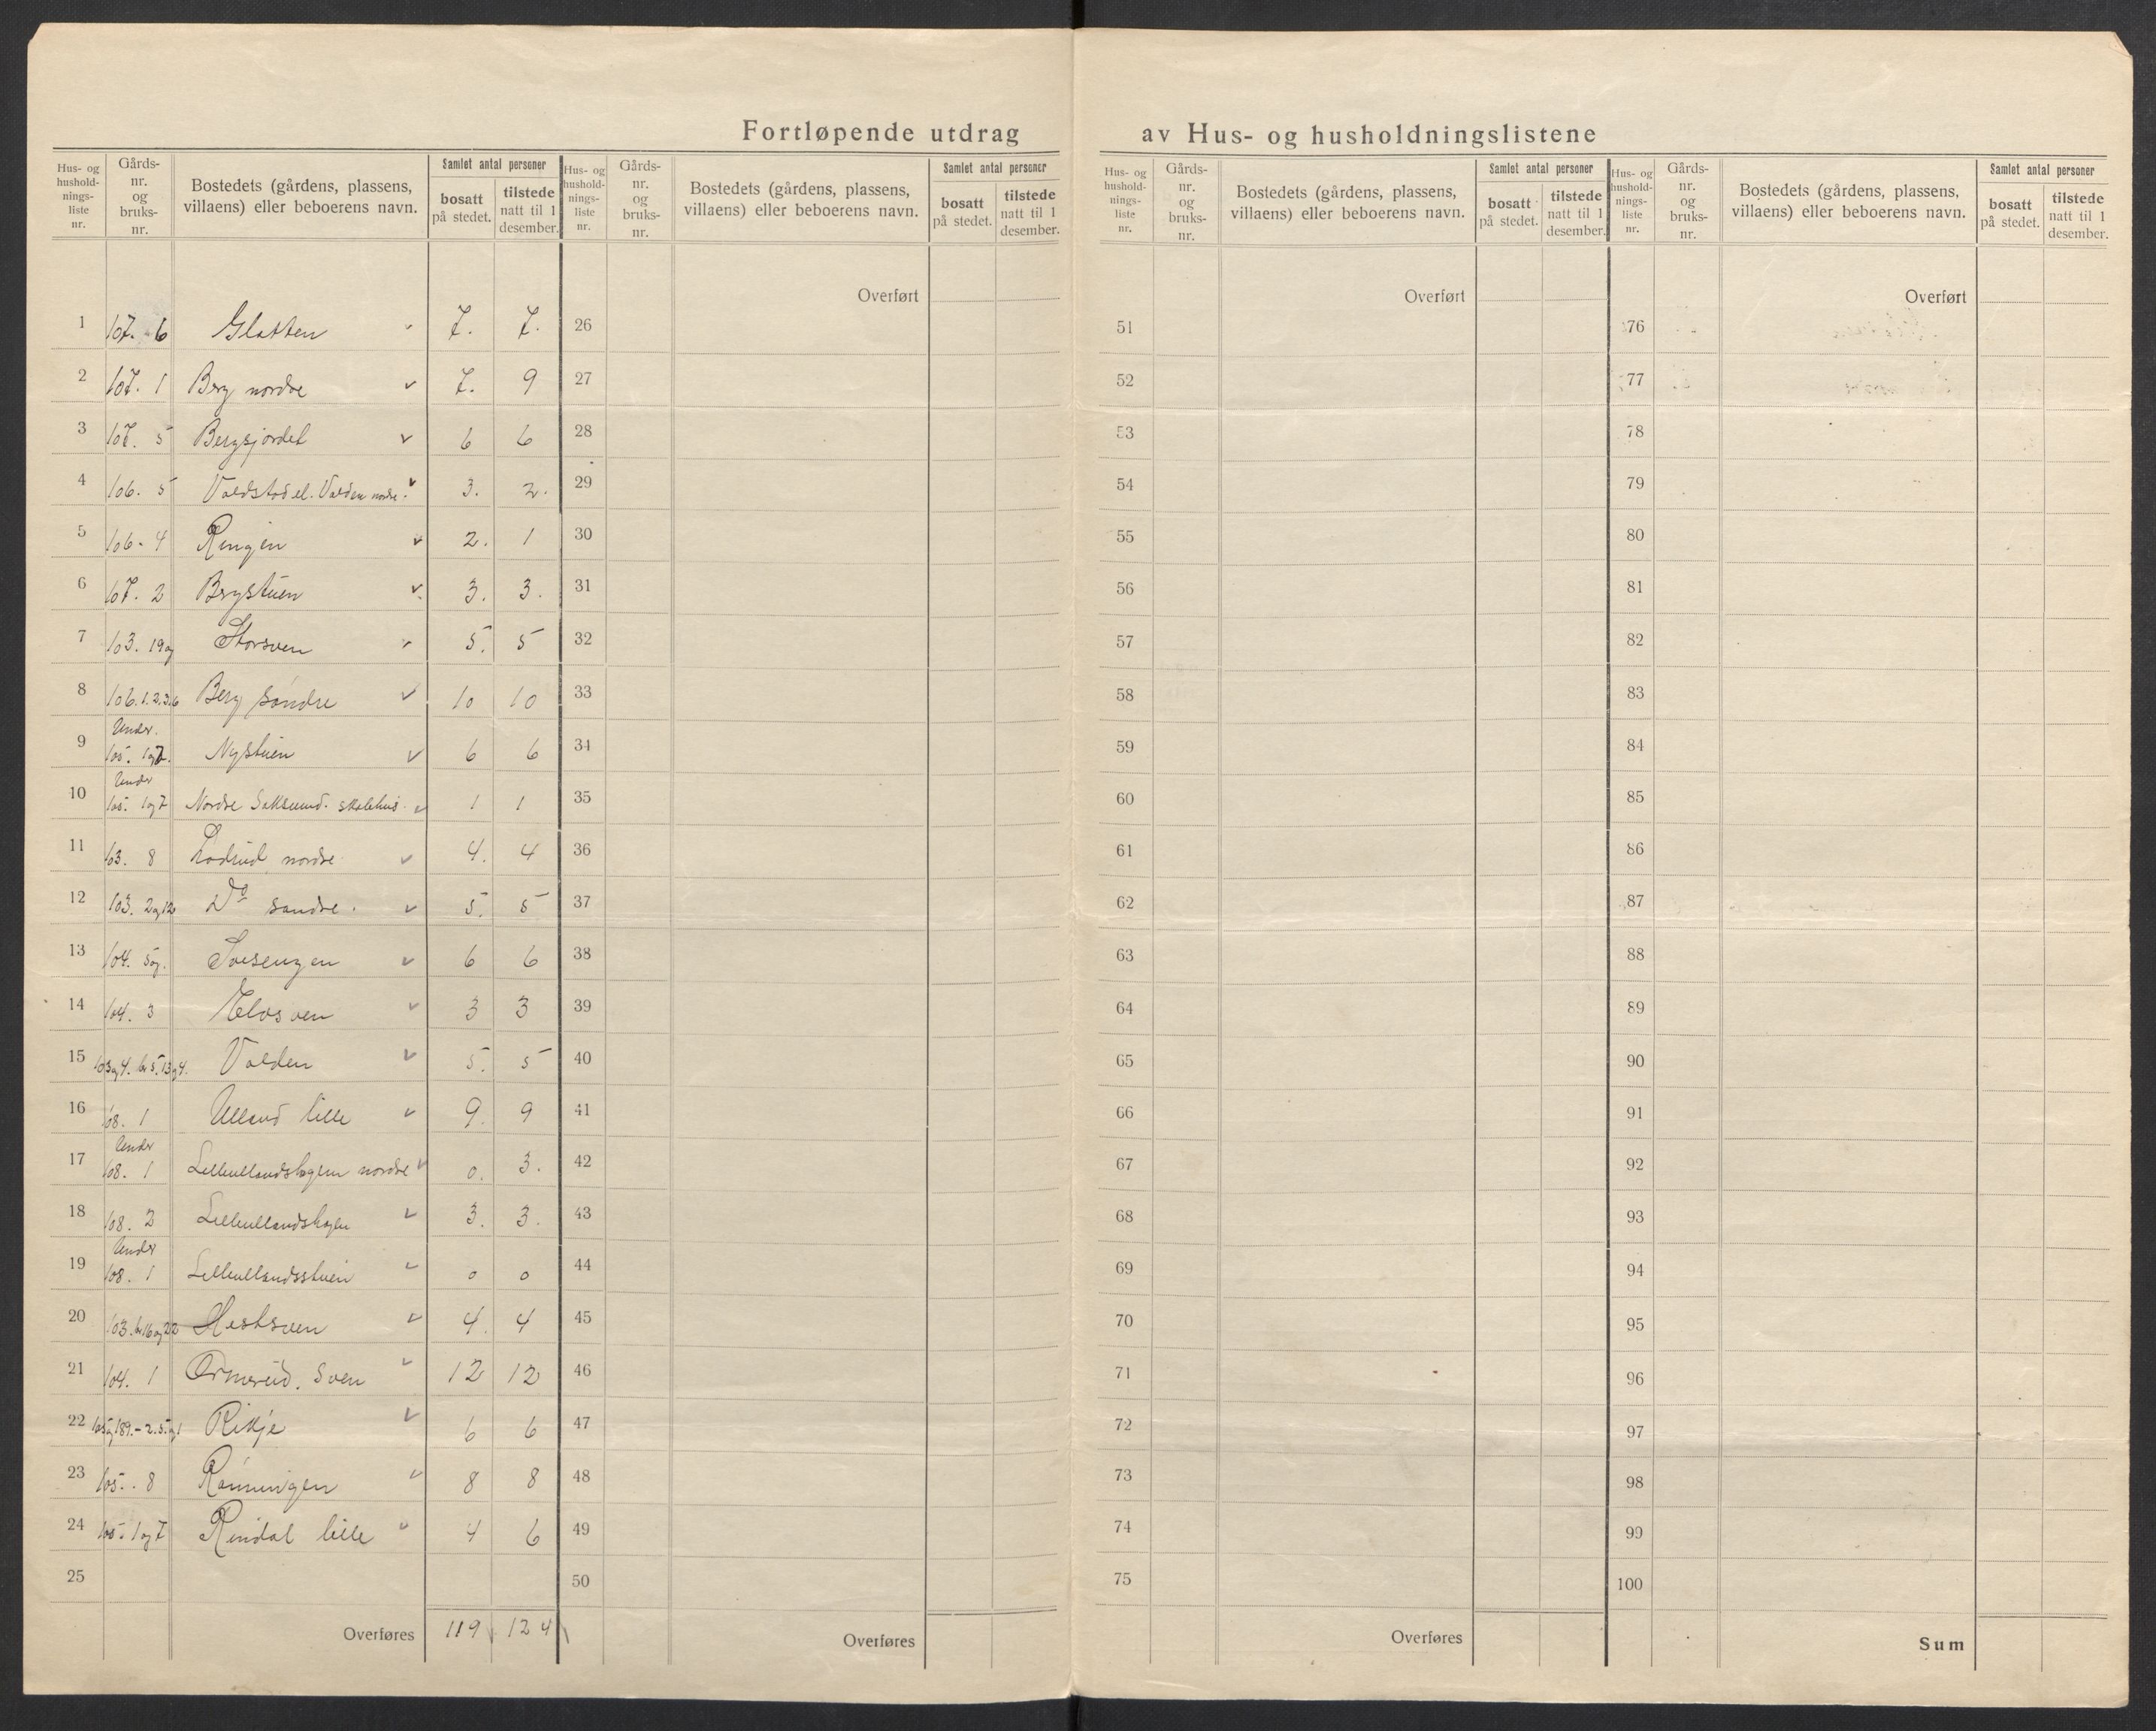 Fortløpende utdrag av Hus- og husholdningslistene
Hus- og husholdnings-liste nr. Gårds-nr. og bruks-nr. Bostedets (gårdens, plassens, villaens) eller beboerens navn. Samlet antal personer bosatt på stedet. tilstede natt til 1 desember.
Hus- og husholdnings-liste nr. Gårds-nr. og bruks-nr. Bostedets (gårdens, plassens, villaens) eller beboerens navn. Samlet antal personer bosatt på stedet. tilstede natt til 1 desember.
Hus- og husholdnings-liste nr. Gårds-nr. og bruks-nr. Bostedets (gårdens, plassens, villaens) eller beboerens navn. Samlet antal personer bosatt på stedet. tilstede natt til 1 desember.
Hus- og husholdnings-liste nr. Gårds-nr. og bruks-nr. Bostedets (gårdens, plassens, villaens) eller beboerens navn. Samlet antal personer bosatt på stedet. tilstede natt til 1 desember.
1 107. 6 Glatten 7. 7.
2 107. 1 Berg nordre 7. 9
3 107. 5 Bergsjordet 6 6
4 106. 5 Voldstad el. Volden nordre. 3. 2.
5 106. 4 Ringen 2. 1
6 107. 2 Bergstuen 3. 3.
7 103. 19 og Storsven 5. 5
8 106. 1. 2. 3. 6 Berg søndre 10 10
9 Under 105. 1 og 7. Nystuen 6 6
10 Under 105. 1 og 7 Nordre Saksumd. skolehus. 1 1
11 103. 8 nordre 4. 4
12 103. 2 og 12 Do søndre. 5. 5
13 104. 5 og. 6 6
14 104. 3 3 3
15 Volden 5. 5
16 108. 1 Ulland lille 9. 9
17 Under 108. 1 Lilleullandshagen nordre 0. 3.
18 108. 2 Lilleullandshagen 3. 3.
19 Under 108. 1 Lilleullandsstuen 0 0
20 103. 16 og 22 Hestsven 4. 4
21 104. 1 Ormerud. Sven 12 12
22 6 6
23 105. 8 Rønningen 8 8
24 105. 1 og 7 Rindal lille 4 6
25
Overføres 119 124
Overført
26
27
28
29
30
31
32
33
34
35
36
37
38
39
40
41
42
43
44
45
46
47
48
49
50
Overføres
Overført
51
52
53
54
55
56
57
58
59
60
61
62
63
64
65
66
67
68
69
70
71
72
73
74
75
Overføres
Overført
76
77
78
79
80
81
82
83
84
85
86
87
88
89
90
91
92
93
94
95
96
97
98
99
100
Sum